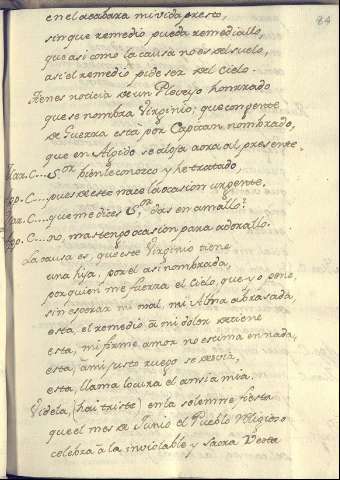 84
en el acabara mi vida presto,
sin que remedio pueda remediallo,
que asi como la causa no es del suelo,
asi el remedio pide ser del Cielo.
Tienes noticia de un Pleveyo honrrado
que se nombra Virginio; que con gente
de Guerra està por Capitan nombrado,
que en Algido se aloja aora al presente.
Mar. C.... S.or bien le conozco y he tratado,
App. C.... pues de este nace la ocasion urgente.
Mar. C.... que me dices S.or das en amallo?
App. C.... no, mas tengo ocasion para adorallo.
La causa es, que este Virginio tiene
una hija, por el asi nombrada,
por quien me fuerza el Cielo, que yo pene,
sin esperar mi mal, mi Alma abrasada,
esta el remedio à mi dolor detiene
esta, mi firme amor no estima en nada,
esta, à mi justo ruego se desvia,
esta, llama locura el ansia mia.
Videla, (hai triste) en la solemne fiesta
que el mes de Junio el Pueblo religioso
celebra à la inviolable y sacra Vesta